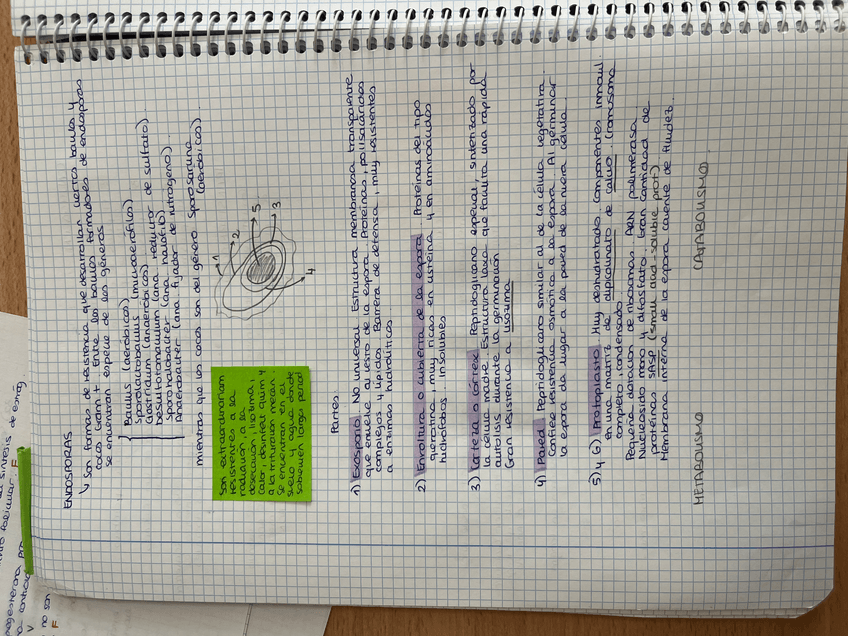 ENDOSPORAS
↳ son formas de resistencia que desarrollan ciertos bacilos y
cocos Gram +. Entre los bacilos formadores de endosporas
se encuentran especie de los géneros:
Bacillus (aeróbicos)
Sporolactobacillus (microaerófilos)
Clostridium (anaeróbicos)
Desulfotomaculum (ana reductor de sulfato).
Sporohalobacter (ana halófilo)
Anaerobacter (ana fijador de nitrógeno).
mientras que los cocos son del género Sporosarcina
(aeróbicos).
Son extraordinariam
resistentes a la
radiación, a la
desecación, lisozima,
calor, desinfect quim y
a la trituración mecán.
Se encuentran en el
suelo y agua donde
sobreviven largos period
1
2
5
3
4
Partes
1) Exosporio. No universal. Estructura membranosa transparente
que envuelve al resto de la espora. Proteínas, polisacáridos
complejos y lípidos. Barrera de defensa, muy resistentes
a enzimas hidrolíticos
2) Envoltura o cubierta de la espora. Proteínas del tipo
queratina, muy ricas en cisteína y en aminoácidos
hidrófobos. Insolubles
3) Corteza o córtex. Peptidoglicano especial, sintetizado por
la célula madre. Estructura laxa que facilita una rápida
autolisis durante la germinación
Gran resistencia a lisozima
4) Pared. Peptidoglicano similar al de la célula vegetativa.
Confiere resistencia osmótica a la espora. Al germinar
la espora da lugar a la pared de la nueva célula.
5) y 6) Protoplasto. Muy deshidratado, componentes inmovil
en una matriz de dipicolinato de calcio. Cromosoma
completo, condensado
Pequeña dotación de ribosomas. ARN polimerasa
Nucleósido mono y difosfato. Gran cantidad de
proteínas SASP (small acid-soluble prot).
Membrana interna de la espora carente de fluidez.
METABOLISMO
CATABOLISMO